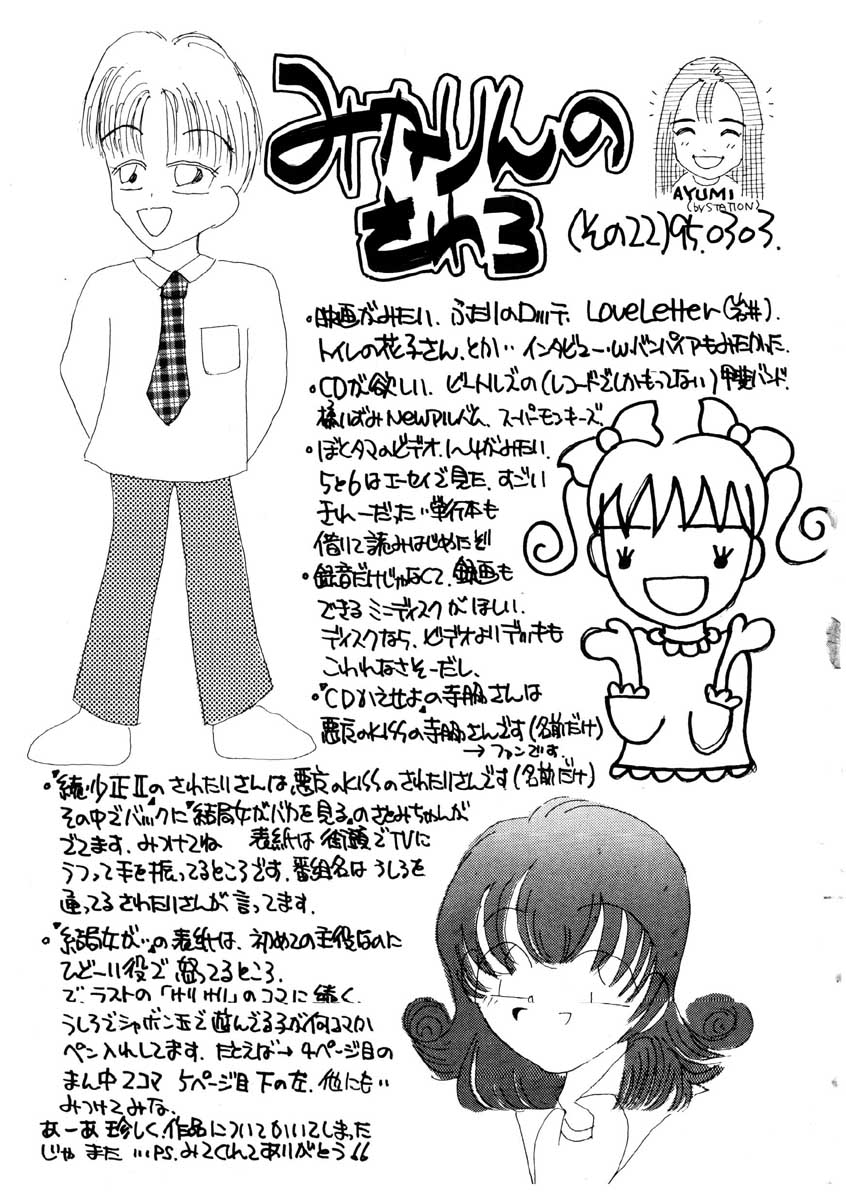 みなりんの
され3
AYUMI
(by STATION)
(その22)95.0303.
・映画がみたい、ふたりのロッテ、LoveLetter(岩井).
トイレの花子さん、とか‥インタビュー・w.バンパイアもみたかった.
・CDが欲しい. ビートルズの(レコードでしかもってない)甲斐バンド.
いずみNewアルバム、スーパーモンキーズ.
・ぼくタマのビデオ.1〜4がみたい.
5と6はエーセイで見た.すごい
きれーだった‥単行本も
借りて読みはじめたぞ
・録音だけじゃなくて、録画も
できるミニディスクがほしい.
ディスクなら、ビデオよりデッキも
こわれなさそーだし、
・"CDかえせよ"の寺脇さんは
悪友のKissの寺脇さんです(名前だけ)
→ファンです.
・"続・少正Ⅱ"のされたりさんは悪友のKissのされたりさんです(名前だけ)
その中でバックに"結局女がバカを見る"のさとみちゃんが
でてます.みつけてね 表紙は街頭でTVに
うつって手を振ってるところです.番組名はうしろを
通ってるされたりさんが言ってます.
・"結局女が‥"の表紙は、初めての主役なのに
ひどーい役で怒ってるところ.
で.ラストの「けりけり」のコマに続く.
うしろでシャボン玉で遊んでる子が何コマか
ペン入れしてます.たとえば→4ページ目の
まん中2コマ 5ページ目下の左.他にも‥
みつけてみな.
あーあ珍しく.作品についてかいてしまった
じゃ また …PS.みてくれてありがとう!!